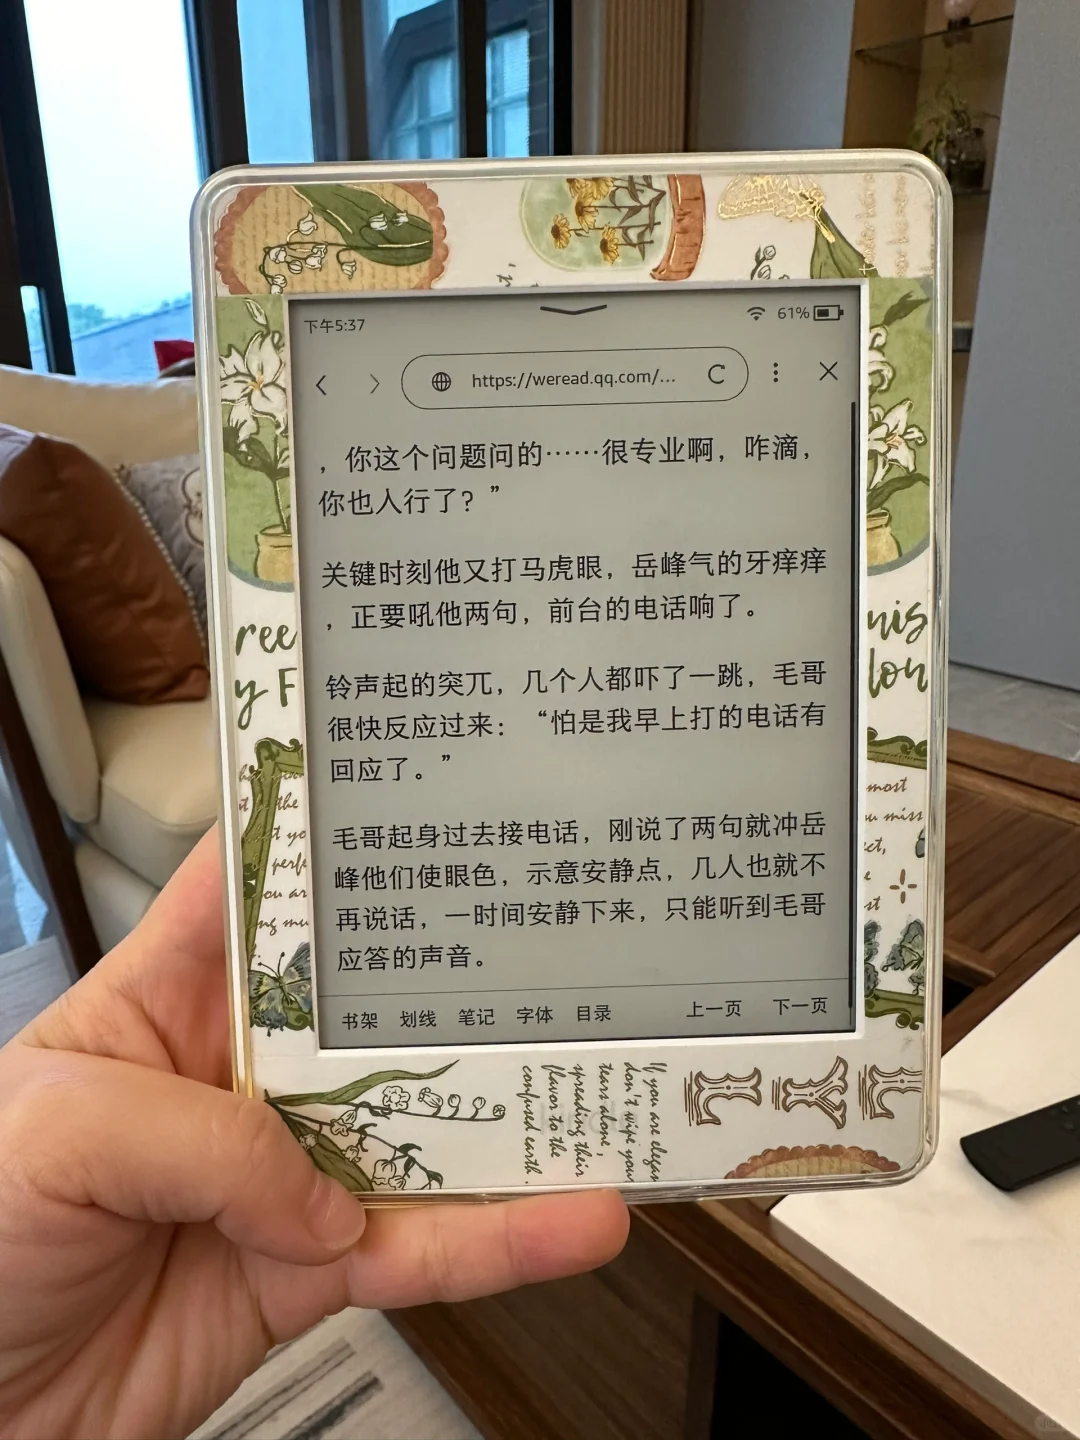 下午5:37
61%
https://weread.qq.com/...
，你这个问题问的……很专业啊，咋滴，
你也入行了？”
关键时刻他又打马虎眼，岳峰气的牙痒痒
，正要吼他两句，前台的电话响了。
铃声起的突兀，几个人都吓了一跳，毛哥
很快反应过来：“怕是我早上打的电话有
回应了。”
毛哥起身过去接电话，刚说了两句就冲岳
峰他们使眼色，示意安静点，几人也就不
再说话，一时间安静下来，只能听到毛哥
应答的声音。
书架 划线 笔记 字体 目录 上一页 下一页
ree
y F
nis
lou
the
most
u miss
If you are elegan
don't wipe your
tears alone,
spreading their
flavor to the
confused earth.
LYL